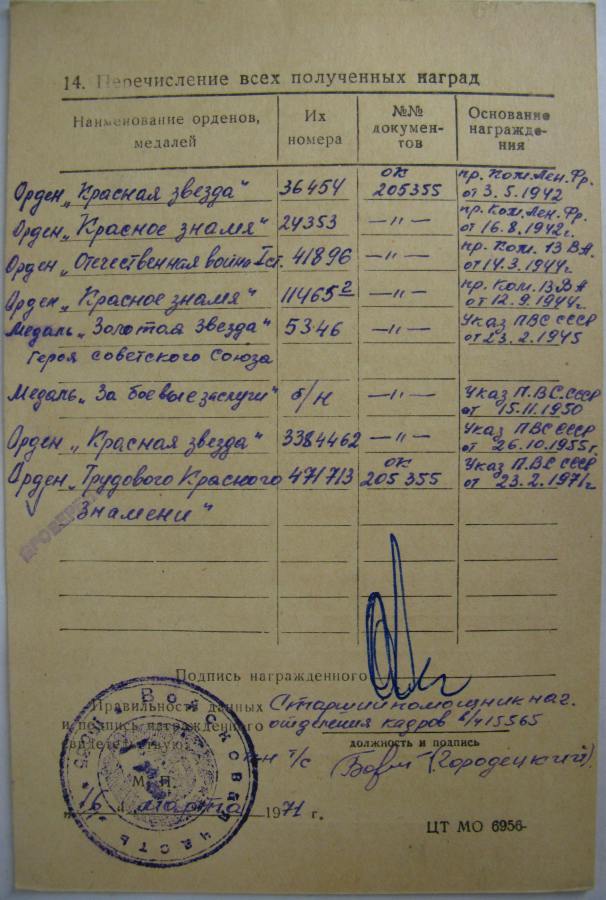 14. Перечисление всех полученных наград
Наименование орденов, медалей
Их номера
№№ документов
Основание награждения
Орден „Красная звезда“ 36454 ОК 205355 пр. Ком. Лен. Фр. от 3.5.1942
Орден „Красное знамя“ 24353 —"— пр. Ком. Лен. Фр. от 16.8.1942г.
Орден „Отечественная война I ст. 41896 —"— пр. Ком. 13 ВА. от 14.3.1944г.
Орден „Красное знамя“ 11465² —"— пр. Ком. 13 ВА от 12.9.1944г.
Медаль „Золотая Звезда“ 5346 —"— Указ ПВС СССР от 23.2.1945
Героя Советского Союза
Медаль „За боевые заслуги“ б/н —"— Указ П.ВС.СССР от 15.11.1950
Орден „Красная звезда“ 3384462 —"— Указ ПВС СССР от 26.10.1955г.
Орден „Трудового Красного 471713 ОК 205355 Указ П.ВС СССР от 23.2.1971г
Знамени“
ПРОВЕРЕНО
Подпись награжденного
Правильность данных Старший помощник нач.
и подпись награжденного отделения кадров в/ч 15565
свидетельствую: должность и подпись
п-к т/с (Городецкий)
М. П.
„16“ марта 1971 г.
Войсковая часть
ЦТ МО 6956-